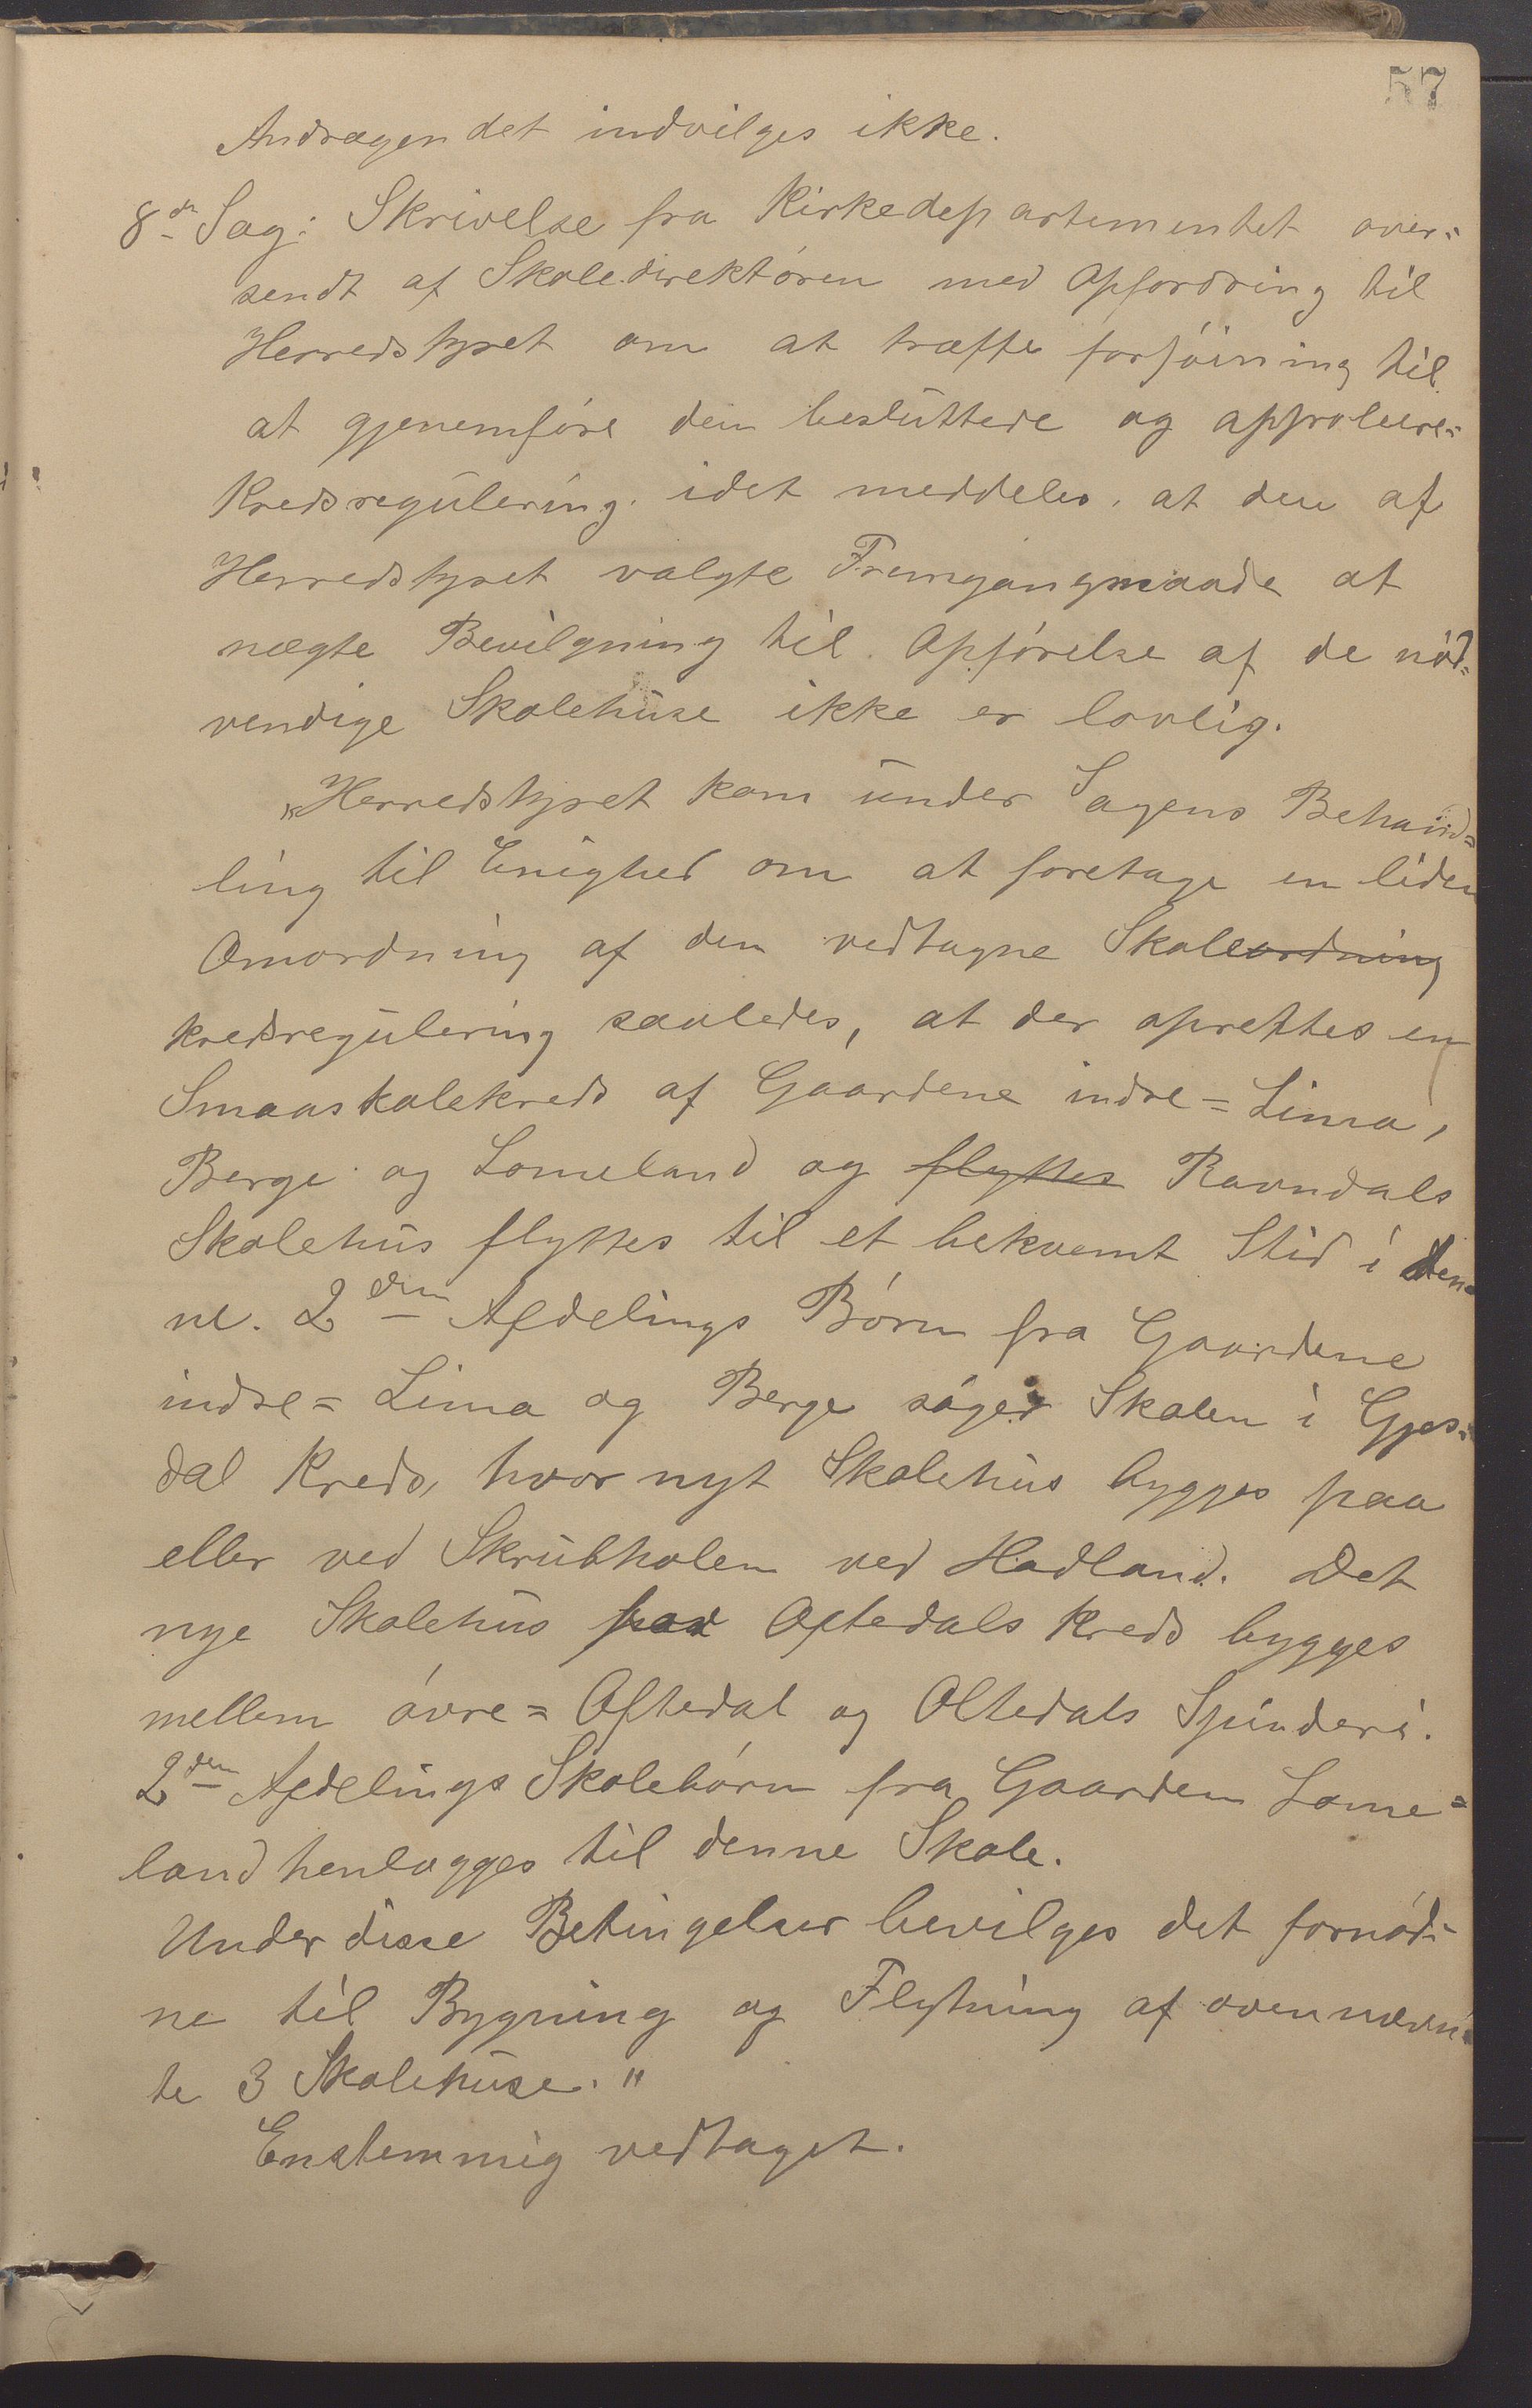 57
Andragendet indvilges ikke.
8de Sag: Skrivelse fra Kirkedepartementet over=
sendt af Skoledirektøren med Opfordring til
Herredstyret om at træffe forføining til
at gjenemføre den besluttede og approbere=
Kredsregulering. idet meddeles, at den af
Herredstyret valgte Fremgangmaade at
nægte Bevilgning til Opførelse af de nød=
vendige Skolehuse ikke er lovlig.
"Herredstyret kom under Sagens Behand=
ling til Enighed om at foretage en liden
Omordning af den vedtagne Skoleordning
kredsregulering saaledes, at der oprettes en
Smaaskolekreds af Gaardene indre=Lima,
Berge og Lomeland og flyttes Ravndals
Skolehus flyttes til et bekvemt Stid i den=
ne. 2den Afdelings Børn fra Gaardene
indre=Lima og Berge søger Skolen i Gjes=
dal Kreds, hvor nyt Skolehus bygges paa
eller ved Skrubholen ved Hadland. Det
nye Skolehus for Oftedals Kreds bygges
mellem øvre=Oftedal og Oltedals Spinderi.
2den Afdelings Skolebørn fra Gaarden Lome=
land henlægges til denne Skole.
Under disse Betingelser bevilges det fornød=
ne til Bygning og Flytning af ovennævn=
te 3 Skolehuse."
Enstemmig vedtaget.